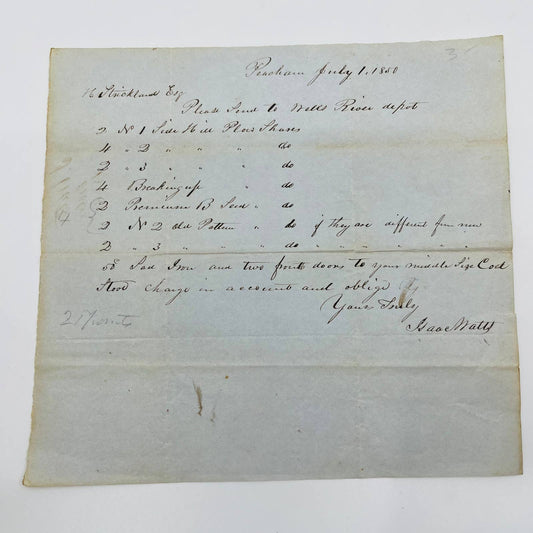 Peacham July 1, 1850
H Strickland Esq
Please Send to Wells River depot
2 No 1 Side Hill Plow Shares
4 " 2 " " " do
2 " 3 " " " do
4 Breaking up " do
2 Premium B Sod " do
2 No 2 old Pattern " do if they are different from new
2 " 3 " " " do " " " " " "
Sad Iron and two front doors to your middle Size Cook
Stove charge in account and oblige
Yours Truly
Isaac Watts